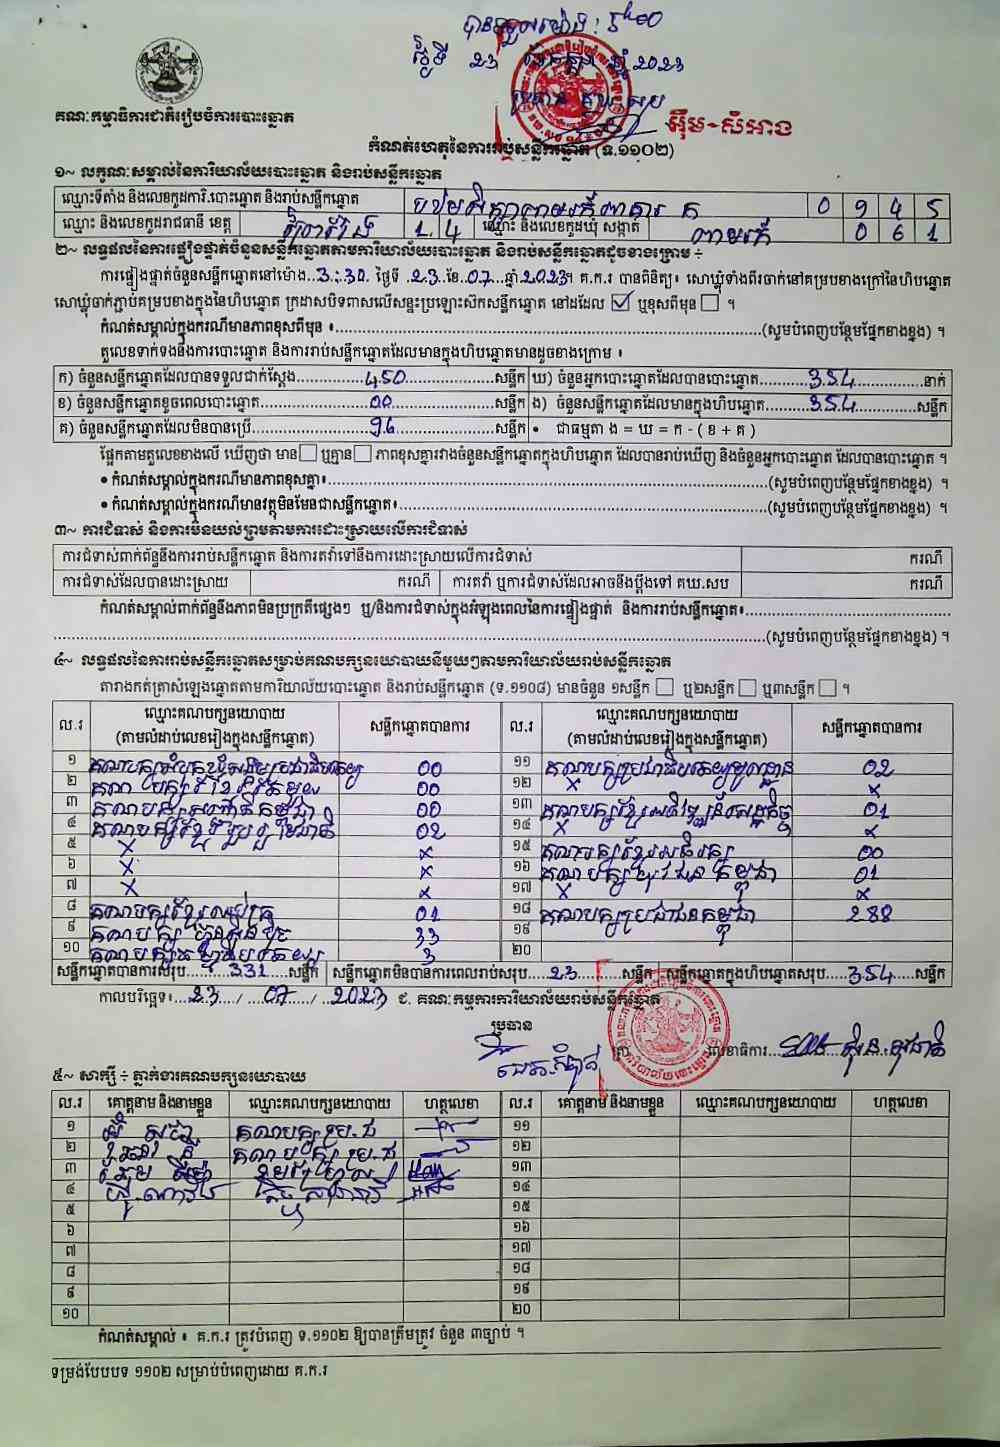 បានទទួលម៉ោង : 5h00
ថ្ងៃទី 23 ខែកក្កដា ឆ្នាំ 2023
អ៊ឹម-សំអាង
គណៈកម្មាធិការជាតិរៀបចំការបោះឆ្នោត
កំណត់ហេតុនៃការរាប់សន្លឹកឆ្នោត (ទ.១១០២)
១~ លក្ខណៈសម្គាល់នៃការិយាល័យបោះឆ្នោត និងរាប់សន្លឹកឆ្នោត
ឈ្មោះទីតាំង និងលេខកូដការិ.បោះឆ្នោត និងរាប់សន្លឹកឆ្នោត 0 9 4 5
ឈ្មោះ និងលេខកូដរាជធានី ខេត្ត ព្រៃវែង 1 4 ឈ្មោះ និងលេខកូដឃុំ សង្កាត់ ពាមរក៍ 0 6 1
២~ លទ្ធផលនៃការផ្ទៀងផ្ទាត់ចំនួនសន្លឹកឆ្នោតតាមការិយាល័យបោះឆ្នោត និងរាប់សន្លឹកឆ្នោតដូចខាងក្រោម ÷
ការផ្ទៀងផ្ទាត់ចំនួនសន្លឹកឆ្នោតនៅម៉ោង..3:30. ថ្ងៃទី .23.ខែ.07...ឆ្នាំ.2023។ គ.ក.រ បានពិនិត្យ៖ សោឃ្លុំទាំងពីរចាក់នៅគម្របខាងក្រៅនៃហិបឆ្នោត
សោឃ្លុំចាក់ភ្ជាប់គម្របខាងក្នុងនៃហិបឆ្នោត ក្រដាសបិទពាសលើសន្ទះប្រឡោះស៊កសន្លឹកឆ្នោត នៅដដែល ☑ ឬខុសពីមុន ☐ ។
កំណត់សម្គាល់ក្នុងករណីមានភាពខុសពីមុន ៖........(សូមបំពេញបន្ថែមផ្នែកខាងខ្នង) ។
តួលេខទាក់ទងនឹងការបោះឆ្នោត និងការរាប់សន្លឹកឆ្នោតដែលមានក្នុងហិបឆ្នោតមានដូចខាងក្រោម ៖
ក) ចំនួនសន្លឹកឆ្នោតដែលបានទទួលជាក់ស្តែង........450........សន្លឹក ឃ) ចំនួនអ្នកបោះឆ្នោតដែលបានបោះឆ្នោត........354........នាក់
ខ) ចំនួនសន្លឹកឆ្នោតខូចពេលបោះឆ្នោត........00........សន្លឹក ង) ចំនួនសន្លឹកឆ្នោតដែលមានក្នុងហិបឆ្នោត........354........សន្លឹក
គ) ចំនួនសន្លឹកឆ្នោតដែលមិនបានប្រើ........96........សន្លឹក • ជាធម្មតា ង = ឃ = ក - ( ខ + គ )
ផ្អែកតាមតួលេខខាងលើ ឃើញថា មាន ☐ ឬគ្មាន ☐ ភាពខុសគ្នារវាងចំនួនសន្លឹកឆ្នោតក្នុងហិបឆ្នោត ដែលបានរាប់ឃើញ និងចំនួនអ្នកបោះឆ្នោត ដែលបានបោះឆ្នោត ។
• កំណត់សម្គាល់ក្នុងករណីមានភាពខុសគ្នា៖........(សូមបំពេញបន្ថែមផ្នែកខាងខ្នង) ។
• កំណត់សម្គាល់ក្នុងករណីមានវត្ថុមិនមែនជាសន្លឹកឆ្នោត៖........(សូមបំពេញបន្ថែមផ្នែកខាងខ្នង) ។
៣~ ការជំទាស់ និងការមិនយល់ព្រមតាមការដោះស្រាយលើការជំទាស់
ការជំទាស់ពាក់ព័ន្ធនឹងការរាប់សន្លឹកឆ្នោត និងការតវ៉ាទៅនឹងការដោះស្រាយលើការជំទាស់ ករណី
ការជំទាស់ដែលបានដោះស្រាយ ករណី ការតវ៉ា ឬការជំទាស់ដែលអាចនឹងប្តឹងទៅ គឃ.សប ករណី
កំណត់សម្គាល់ពាក់ព័ន្ធនឹងភាពមិនប្រក្រតីផ្សេងៗ ឬ/និងការជំទាស់ក្នុងអំឡុងពេលនៃការផ្ទៀងផ្ទាត់ និងការរាប់សន្លឹកឆ្នោត៖........
........(សូមបំពេញបន្ថែមផ្នែកខាងខ្នង) ។
៤~ លទ្ធផលនៃការរាប់សន្លឹកឆ្នោតសម្រាប់គណបក្សនយោបាយនីមួយៗតាមការិយាល័យរាប់សន្លឹកឆ្នោត
តារាងកត់ត្រាសំឡេងឆ្នោតតាមការិយាល័យបោះឆ្នោត និងរាប់សន្លឹកឆ្នោត (ទ.១១០៨) មានចំនួន ១សន្លឹក ☐ ឬ២សន្លឹក ☐ ឬ៣សន្លឹក ☐ ។
ល.រ ឈ្មោះគណបក្សនយោបាយ (តាមលំដាប់លេខរៀងក្នុងសន្លឹកឆ្នោត) សន្លឹកឆ្នោតបានការ ល.រ ឈ្មោះគណបក្សនយោបាយ (តាមលំដាប់លេខរៀងក្នុងសន្លឹកឆ្នោត) សន្លឹកឆ្នោតបានការ
១ 00 ១១ គណបក្សប្រជាធិបតេយ្យមូលដ្ឋាន 02
២ 00 ១២ x x
៣ 00 ១៣ គណបក្សខ្មែរអភិវឌ្ឍន៍សេដ្ឋកិច្ច 01
៤ គណបក្សខ្មែររួបរួមជាតិ 02 ១៤ x x
៥ x x ១៥ 00
៦ x x ១៦ គណបក្សយុវជនកម្ពុជា 01
៧ x x ១៧ x x
៨ គណបក្សខ្មែរឈប់ក្រ 01 ១៨ គណបក្សប្រជាជនកម្ពុជា 288
៩ គណបក្សហ្វ៊ុនស៊ិនប៉ិច 33 ១៩
១០ 3 ២០
សន្លឹកឆ្នោតបានការសរុប......331......សន្លឹក សន្លឹកឆ្នោតមិនបានការពេលរាប់សរុប....23......សន្លឹក សន្លឹកឆ្នោតក្នុងហិបឆ្នោតសរុប....354......សន្លឹក
កាលបរិច្ឆេទ៖...23..../...07..../..2023 ជ. គណៈកម្មការការិយាល័យរាប់សន្លឹកឆ្នោត
ប្រធាន
លេខាធិការ
៥~ សាក្សី ÷ ភ្នាក់ងារគណបក្សនយោបាយ
ល.រ គោត្តនាម និងនាមខ្លួន ឈ្មោះគណបក្សនយោបាយ ហត្ថលេខា ល.រ គោត្តនាម និងនាមខ្លួន ឈ្មោះគណបក្សនយោបាយ ហត្ថលេខា
១ គណបក្សប្រ.ជ ១១
២ គណបក្សប្រ.ជ ១២
៣ ១៣
៤ ១៤
៥ ១៥
៦ ១៦
៧ ១៧
៨ ១៨
៩ ១៩
១០ ២០
កំណត់សម្គាល់ ៖ គ.ក.រ ត្រូវបំពេញ ទ.១១០២ ឱ្យបានត្រឹមត្រូវ ចំនួន ៣ច្បាប់ ។
ទម្រង់បែបបទ ១១០២ សម្រាប់បំពេញដោយ គ.ក.រ